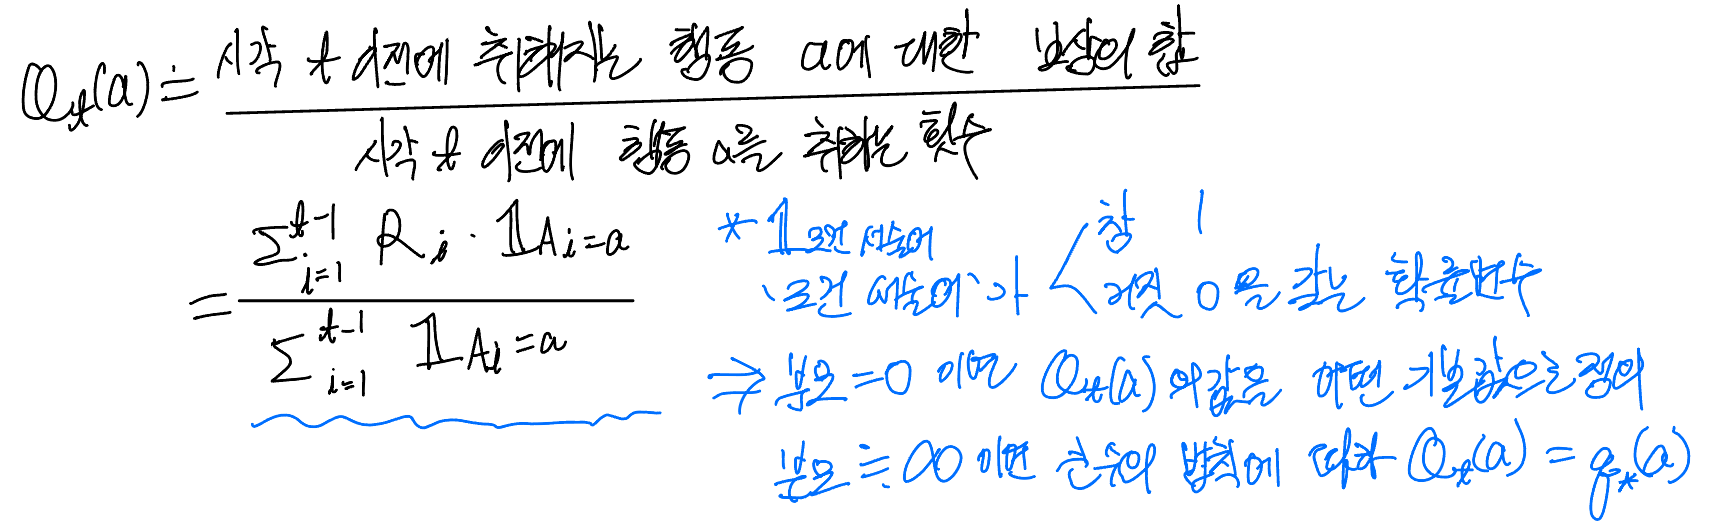 Qₜ(a) ≐ 시각 t 이전에 취해지는 행동 a에 대한 보상의 합
시각 t 이전에 행동 a를 취하는 횟수
= Σᵢ₌₁ᵗ⁻¹ Rᵢ · 𝟙Aᵢ=a
Σᵢ₌₁ᵗ⁻¹ 𝟙Aᵢ=a
* 𝟙조건 서술어
'조건 서술어'가 < 참 1
거짓 0 을 갖는 확률변수
⇒ 분모 = 0 이면 Qₜ(a)의 값은 어떤 기본값으로 정의
분모 ≐ ∞ 이면 큰 수의 법칙에 따라 Qₜ(a) = q⁎(a)